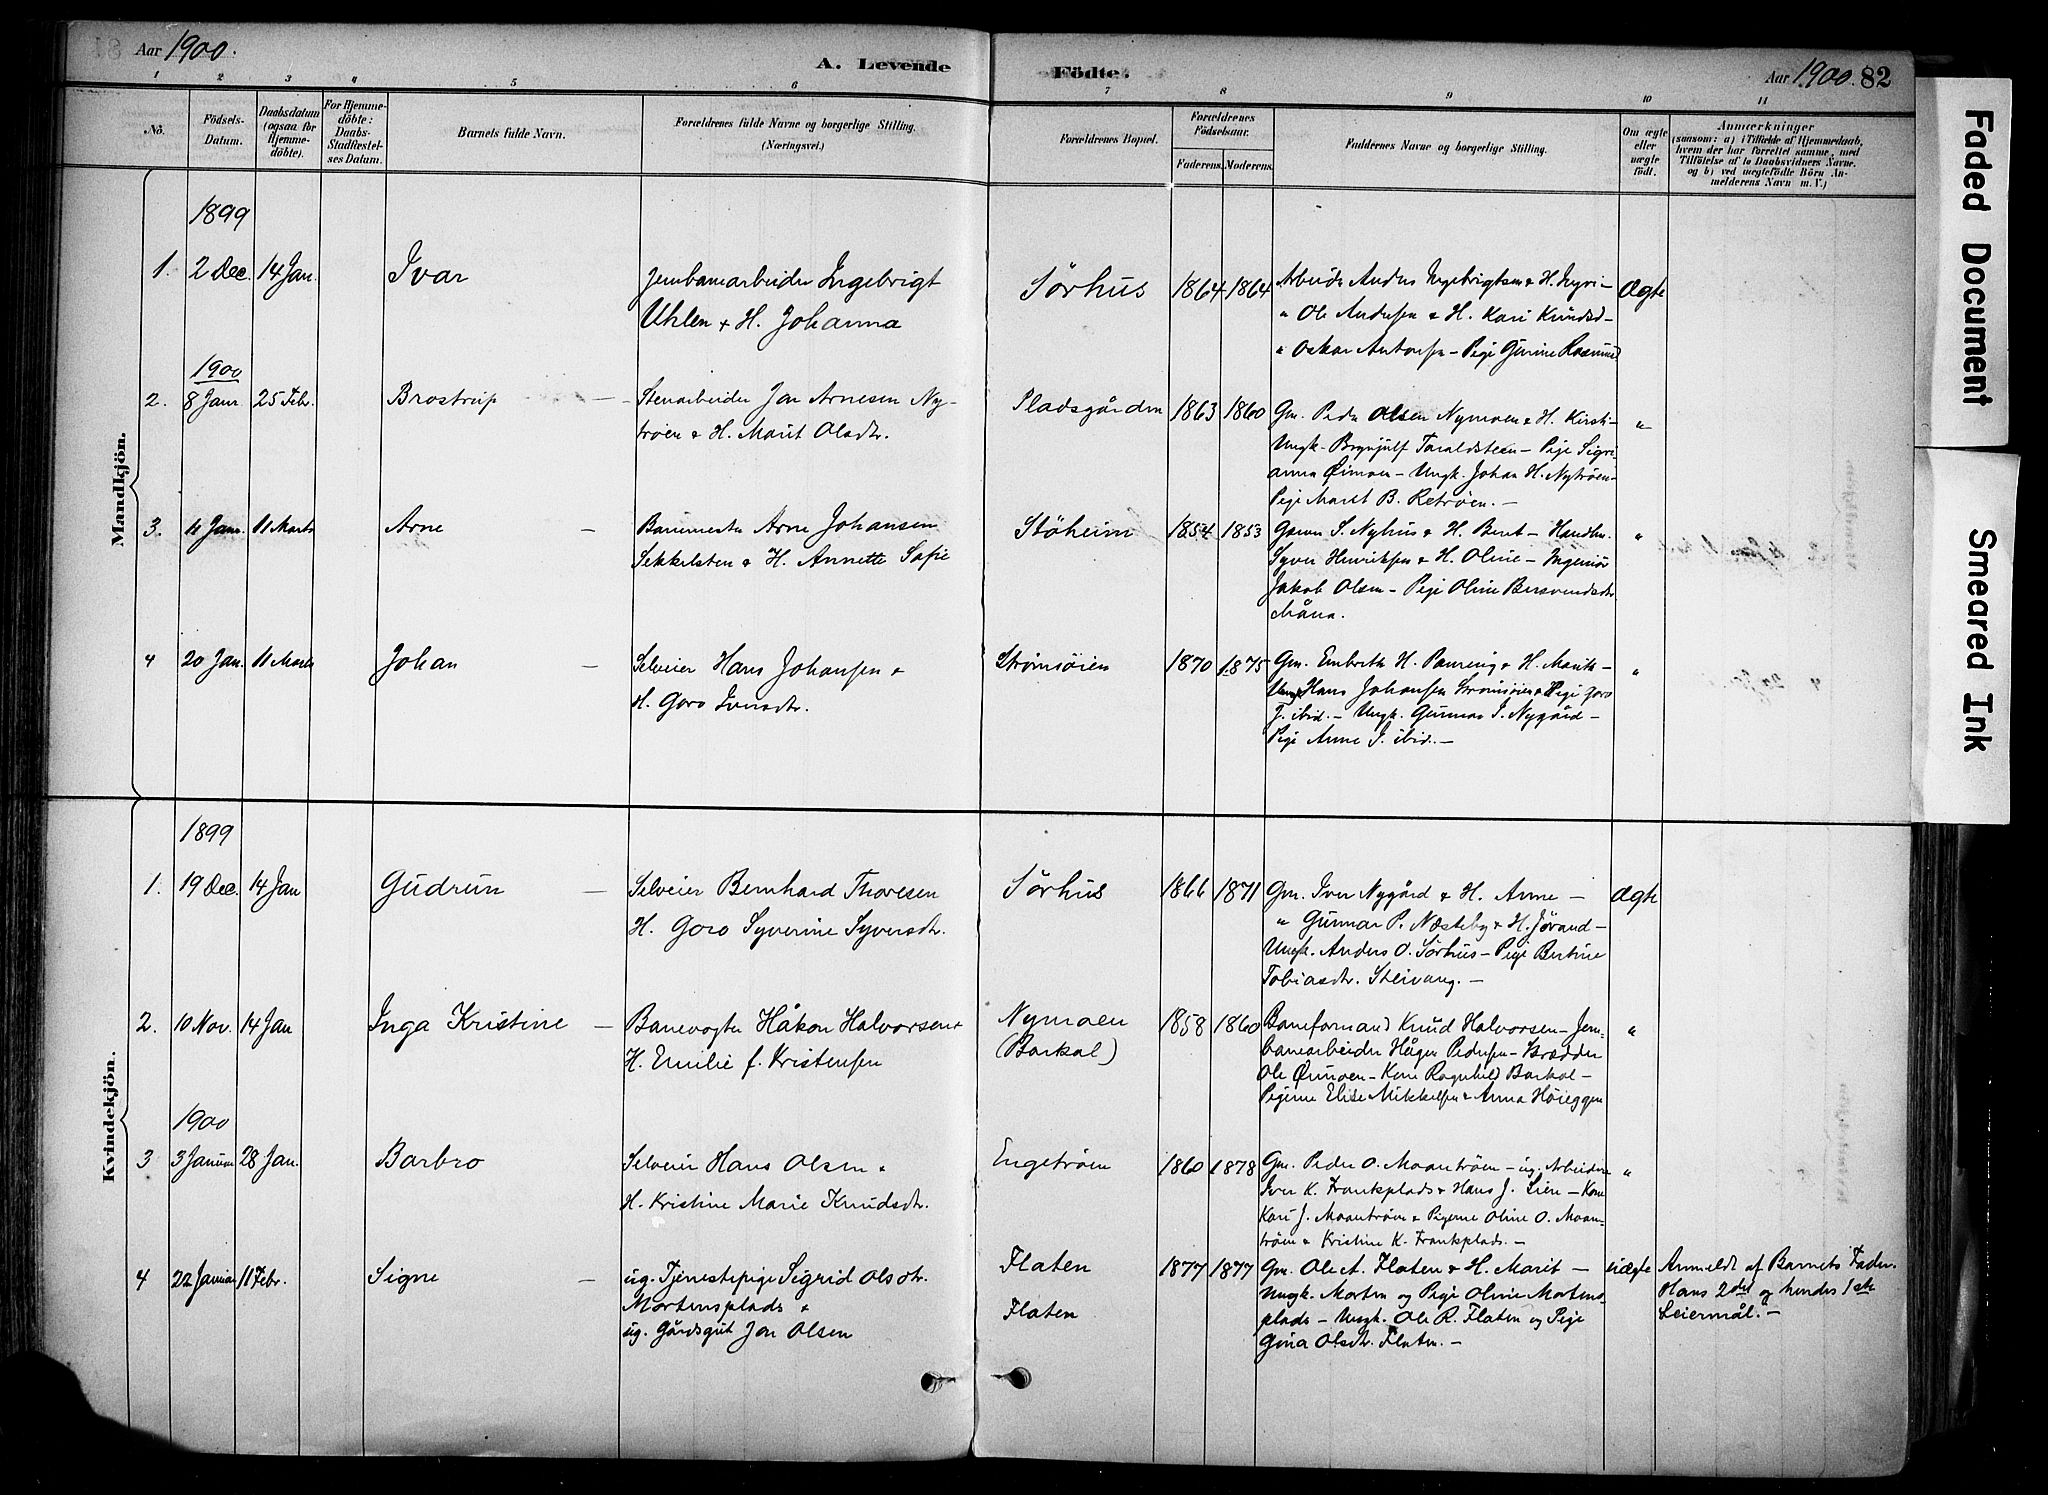 Aar 1900.
A. Levende Födte.
Aar 1900. 82
1 2 3 4 5 6 7 8 9 10 11
Nö.
Födsels-Datum.
Daabsdatum (ogsaa for Hjemmedöbte).
For Hjemmedöbte: Daabs-Stadfæstelses Datum.
Barnets fulde Navn.
Forældrenes fulde Navne og borgerlige Stilling. (Næringsvei.)
Forældrenes Bopæl.
Forældrenes Födselsaar.
Faderens. Moderens.
Faddernes Navne og borgerlige Stilling.
Om ægte eller uægte födt.
Anmærkninger
(saasom: a) i Tilfælde af Hjemmedaab, hvem der har forrettet samme, med Tilföielse af to Daabsvidners Navne. og b) ved uægtefödte Börn Anmelderens Navn m. V.)
Faded Document
Smeared Ink
Mandkjön.
1899
1. 2 Dec. 14 Jan. Ivar
Jernbanearbeider Ingebrigt
Uhlen & H. Johanna
Sörhus 1864 1864
Arbeider Anders Ingebrigtsen & H. Ingri -
" Ole Andersen & H. Kari Knudsd -
" Oskar Antonsen - Pige Gurine
Ægte
1900
2. 8 Janr. 25 Febr. Brostrup -
Stenarbeider Jon Arnesen Ny-
tröen & H. Marit Olsdtr.
Pladsgården 1863 1860
Gm. Peder Olsen Nymoen & H. Kirsti -
Ungk. Brynjulf Taraldsteen - Pige Sigri-
anna Øimoen - Ungk. Johan H. Nytröen -
Pige Maret B. Retröen. -
"
3. 4 Janr. 11 Marts Arne -
Banemester Arne Johansen
Sekkelsten & H. Annette Sofie
Stöheim 1854 1853
S. Nyhus & H. Beret - Handlm.
Syver Henriksen & H. Oline - Ingeniör
Jakob Olsen - Pige Oline Bersvendsdtr
Måna.
"
4 20 Jan. 11 Marts Johan -
Selveier Hans Johansen &
H. Goro Iversdtr.
Strömsöien 1870 1875
Gm. Embrikt H. & H. Marit -
Ungk. Hans Johansen Strömsöien & Pige Goro
J. ibid. - Ungk. Gunnar I. Nygård -
Pige Anne I. ibid. -
"
Kvindekjön.
1899
1. 19 Dec. 14 Jan Gudrun -
Selveier Bernhard Thoresen
H. Goro Syverine Syversdtr.
Sörhus 1866 1871
Gm. Iver Nygård & H. Anne -
" Gunnar P. Næsteby & H. Jörand -
Ungk. Anders O. Sörhus - Pige Bertine
Tobiasdtr. Steivang. -
Ægte
2. 10 Nov. 14 Jan Inga Kristine -
Banevogter Håkon Halvorsen &
H. Emilie f. Kristensen
Nymoen
(Barkal)
1858 1860
Baneformand Knud Halvorsen - Jern-
banearbeider Hågen Pedersen - Brædder
Ole Øimoen - Kone Ragnhild Barkal -
Pigerne Elise Mikkelsen & Anna Höieggen
"
1900
3 3 Januar 28 Jan. Barbro
Selveier Hans Olsen &
H. Kristine Marie Knudsdtr.
Engetröen 1860 1878
Gm. Peder O. Moantröen - ug. Arbeidere
Iver K. Frankplads & Hans J. Lien - Kone
Kari J. Moantröen & Pigerne Oline O. Moan-
tröen & Kristine K. Frankplads. -
"
4 22 Januar 11 Febr. Signe -
ug. Tjenestepige Sigrid Olsdtr.
Mortensplads &
ug. Gårdsgut Jon Olsen
Flaten
Flaten
1877 1877
Gm. Ole A. Flaten & H. Marit -
Ungk. Morten og Pige Oline Mortens-
plads - Ungk. Ole R. Flaten og Pige
Gina Olsdtr. Flaten. -
uægte
Anmeldt af Barnets Fader.
Hans 2det og hendes 1ste
Leiermål. -